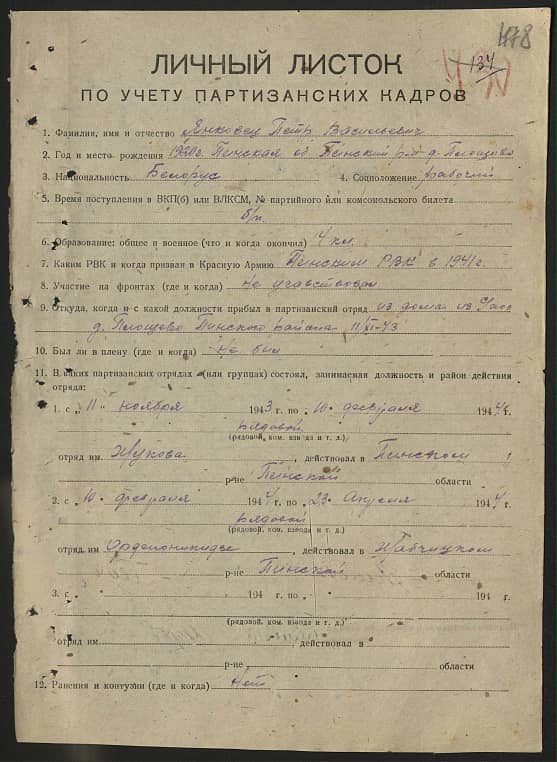 478
134
ЛИЧНЫЙ ЛИСТОК
ПО УЧЕТУ ПАРТИЗАНСКИХ КАДРОВ
1. Фамилия, имя и отчество Янковец Петр Васильевич
2. Год и место рождения Пинская об Пинский р-н д. Площево
3. Национальность Белорус 4. Соцположение рабочий
5. Время поступления в ВКП(б) или ВЛКСМ, № партийного или комсомольского билета
б/п.
6. Образование: общее и военное (что и когда окончил) 4 кл.
7. Каким РВК и когда призван в Красную Армию Пинским РВК в 1941 г.
8. Участие на фронтах (где и когда) Не участвовал
9. Откуда, когда и с какой должности прибыл в партизанский отряд из дома из
д. Площево Пинского района 11/XI-43
10. Был ли в плену (где и когда) Не был
11. В каких партизанских отрядах (или группах) состоял, занимаемая должность и район действия
отряда:
1. с „11„ ноября 1943 г. по „10„ февраля 1944 г.
рядовой
(рядовой, ком. взвода и т. д.)
отряд им. Жукова, действовал в Пинском
р-не Пинской области
2. с „10„ февраля 1944 г. по „23„ Апреля 1944 г.
рядовой
(рядовой, ком. взвода и т. д.)
отряд им Орджоникидзе, действовал в Жабчицком
р-не Пинской области
3. с „ 194 г. по „ 194 г.
(рядовой, ком. взвода и т. д.)
отряд им, действовал в
р-не области
12. Ранения и контузии (где и когда) Нет